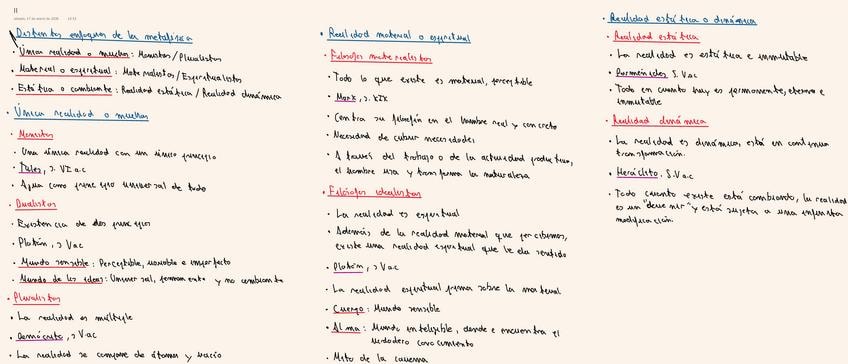 II
sábado, 17 de enero de 2026 13:13
Distintos enfoques de la metafísica
· Única realidad o muchas: Monistas/Pluralistas
· Material o espiritual: Materialistas/Espiritualistas
· Estática o cambiante: Realidad estática/Realidad dinámica
· Única realidad o muchas
· Monistas
· Una única realidad con un único principio
· Tales, s. VI a.c
· Agua como principio universal de todo
· Dualistas
· Existencia de dos principios
· Platón, s V a.c
· Mundo sensible: Perceptible, variable e imperfecto
· Mundo de las ideas: Universal, permanente y no cambiante
· Pluralistas
· La realidad es múltiple
· Demócrito, s V a.c
· La realidad se compone de átomos y vacío
· Realidad material o espiritual
· Filósofos materialistas
· Todo lo que existe es material, perceptible
· Marx, s. XIX
· Centra su filosofía en el hombre real y concreto
· Necesidad de cubrir necesidades
· A través del trabajo o de la actividad productiva,
el hombre usa y transforma la naturaleza
· Filósofos idealistas
· La realidad es espiritual
· Además de la realidad material que percibimos,
existe una realidad espiritual que le da sentido
· Platón, s V a.c
· La realidad espiritual prima sobre la material
· Cuerpo: Mundo sensible
· Alma: Mundo inteligible, donde se encuentra el
verdadero conocimiento
· Mito de la caverna
· Realidad estática o dinámica
· Realidad estática
· La realidad es estática e inmutable
· Parménides, S. V a.c
· Todo en cuanto hay es permanente, eterno e
inmutable
· Realidad dinámica
· La realidad es dinámica, está en continua
transformación.
· Heráclito, S. V a.c
· Todo cuanto existe está cambiando, la realidad
es un "devenir" y está sujeta a una infinita
modificación.